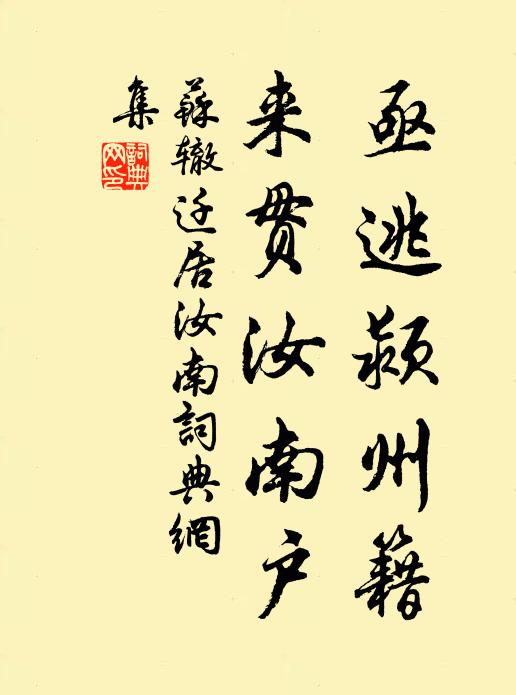 亟逃颍州籍
来贯汝南户
蘇辙迁居汝南詞典網
集
詞典
网印